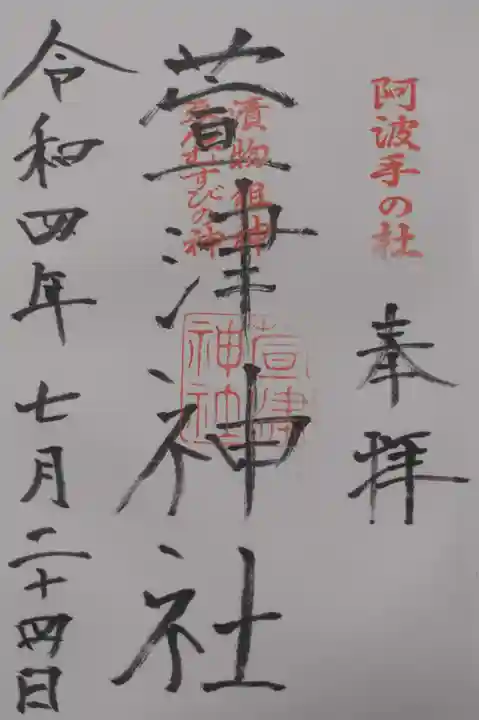 阿波手の杜
奉拝
漬物祖神
縁むすびの神
萱津神社
萱津
神社
令和四年七月二十四日